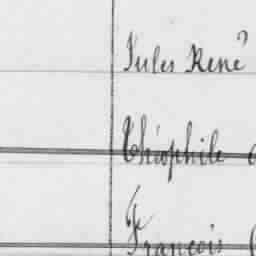 Jules René
Théophile
François